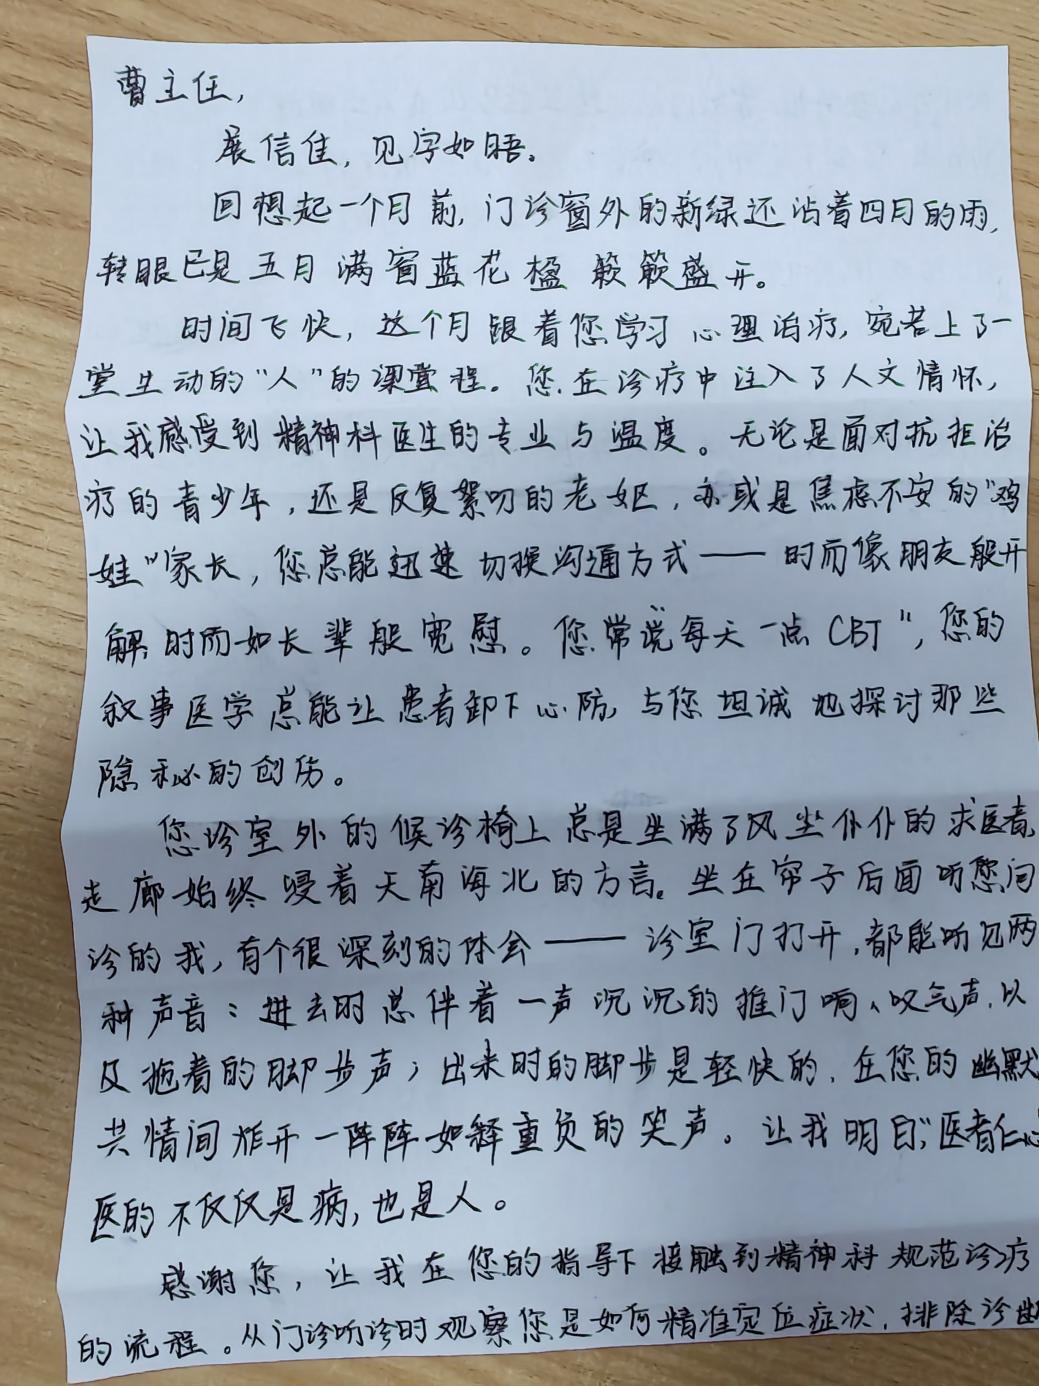 曹主任,
展信佳, 见字如晤。
回想起一个月前, 门诊窗外的新绿还沾着四月的雨,
转眼已是五月满窗蓝花楹簌簌盛开。
时间飞快, 这个月跟着您学习心理治疗, 宛若上了一
堂生动的“人”的课堂程。您在诊疗中注入了人文情怀,
让我感受到精神科医生的专业与温度。无论是面对抗拒治
疗的青少年, 还是反复絮叨的老妪, 亦或是焦虑不安的“鸡
娃”家长, 您总能迅速切换沟通方式——时而像朋友般开
解, 时而如长辈般宽慰。您常说“每天一点CBT”, 您的
叙事医学总能让患者卸下心防, 与您坦诚地探讨那些
隐秘的创伤。
您诊室外的候诊椅上总是坐满了风尘仆仆的求医者,
走廊始终浸着天南海北的方言。坐在帘子后面听您问
诊的我, 有个很深刻的体会——诊室门打开, 都能听见两
种声音: 进去时总伴着一声沉沉的推门响、叹气声, 以
及拖着的脚步声; 出来时的脚步是轻快的, 在您的幽默
共情间炸开一阵阵如释重负的笑声。让我明白, “医者仁心
医的不仅仅是病, 也是人。
感谢您, 让我在您的指导下接触到精神科规范诊疗
的流程。从门诊听诊时观察您是如何精准定位症状, 排除诊断